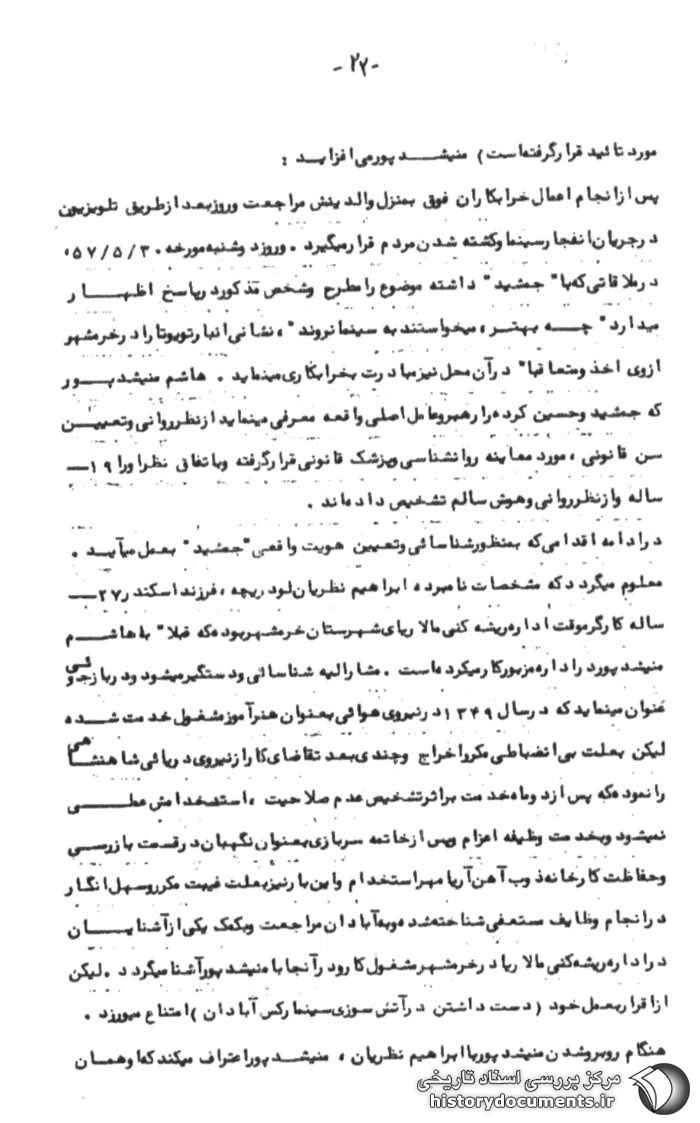 -۲۲-
مورد تائید قرارگرفته‌است) منیشـــد پورمی‌افزایـد :
پس ازانجام اعمال خرابکاران فوق بمنزل والدینش مراجعت وروزبعد ازطریق تلویزیون
درجریان‌انفجارسینما وکشته شدن مردم قرارمیگیرد . وروزد وشنبه‌مورخه ۵۷/۵/۳۰
درملاقاتی‌که‌با" جمشید" داشته موضوع رامطرح وشخص مذکوردرپاسخ اظهـــار
میدارد" چـــه بهتـر ، میخواستند به سینما نروند" ، نشانی‌انبارتویوتا رادرخرمشهر
ازوی اخذ ومتعاقبا" درآن محل نیزمبادرت بخرابکاری‌مینماید . هاشم منیشدپـــور
که جمشید وحسین کرده‌را رهبروعامل‌اصلی‌واقعه معرفی‌مینماید ازنظرروانی‌وتعییـن
سن قانونی ، مورد معاینه روانشناسی‌وپزشک قانونی‌قرارگرفته وباتفاق نظراورا ۱۹ــ
ساله وازنظرروانی‌وهوش سالم تشخیص داده‌اند .
درادامه اقدامی‌که بمنظورشناسائی‌وتعیین هویت واقعی"جمشید" بعمل‌میآیـد .
معلوم میگردد که مشخصات نامبرده ابراهیم نظریان‌لودریچه ، فرزنداسکندر ۲۷ــ
ساله کارگرموقت اداره‌ریشه کنی مالاریای‌شهرستان‌خرمشهربوده‌که قبلا" باهاشــم
منیشد پورد راداره‌مزبورکارمیکرده‌است . مشارالیه شناسائی‌ودستگیرمیشود ودربازجوئی
عنوان مینماید که درسال ۱۳۴۹ درنیروی‌هوائی‌بعنوان هنرآموزمشغول‌خدمت شـده
لیکن بعلت بی‌انضباطی‌مکرراخراج وچندی‌بعد تقاضای‌کارازنیروی‌دریائی‌شاهنشاهی
را نموده‌که پس ازدوماه‌خدمت براثرتشخیص عدم صلاحیت ، استخدامش عملـــی
نمیشود وبخدمت وظیفه اعزام وپس ازخاتمه سربازی‌بعنوان‌نگهبان‌درقسمت بازرسی
وحفاظت کارخانه‌ذوب آهن‌آریامهراستخدام واین‌بارنیزبعلت غیبت مکرروسهل‌انگار
درانجام وظایف مستعفی‌شناخته‌شده‌وبه‌آبادان‌مراجعت وبکمک یکی‌ازآشنایـــان
دراداره‌ریشه‌کنی مالاریا درخرمشهرمشغول‌کارودرآنجا بامنیشد پورآشنا میگردد .لیکن
ازاقراربعمل‌خود (دست داشتن درآتش سوزی‌سینما رکس آبادان) امتناع میورزد .
هنگام روبروشدن‌منیشد پوربا ابراهیم نظریان ، منیشـد پوراعتراف میکند که‌اوهمـان
مرکز بررسی اسناد تاریخی
historydocuments.ir